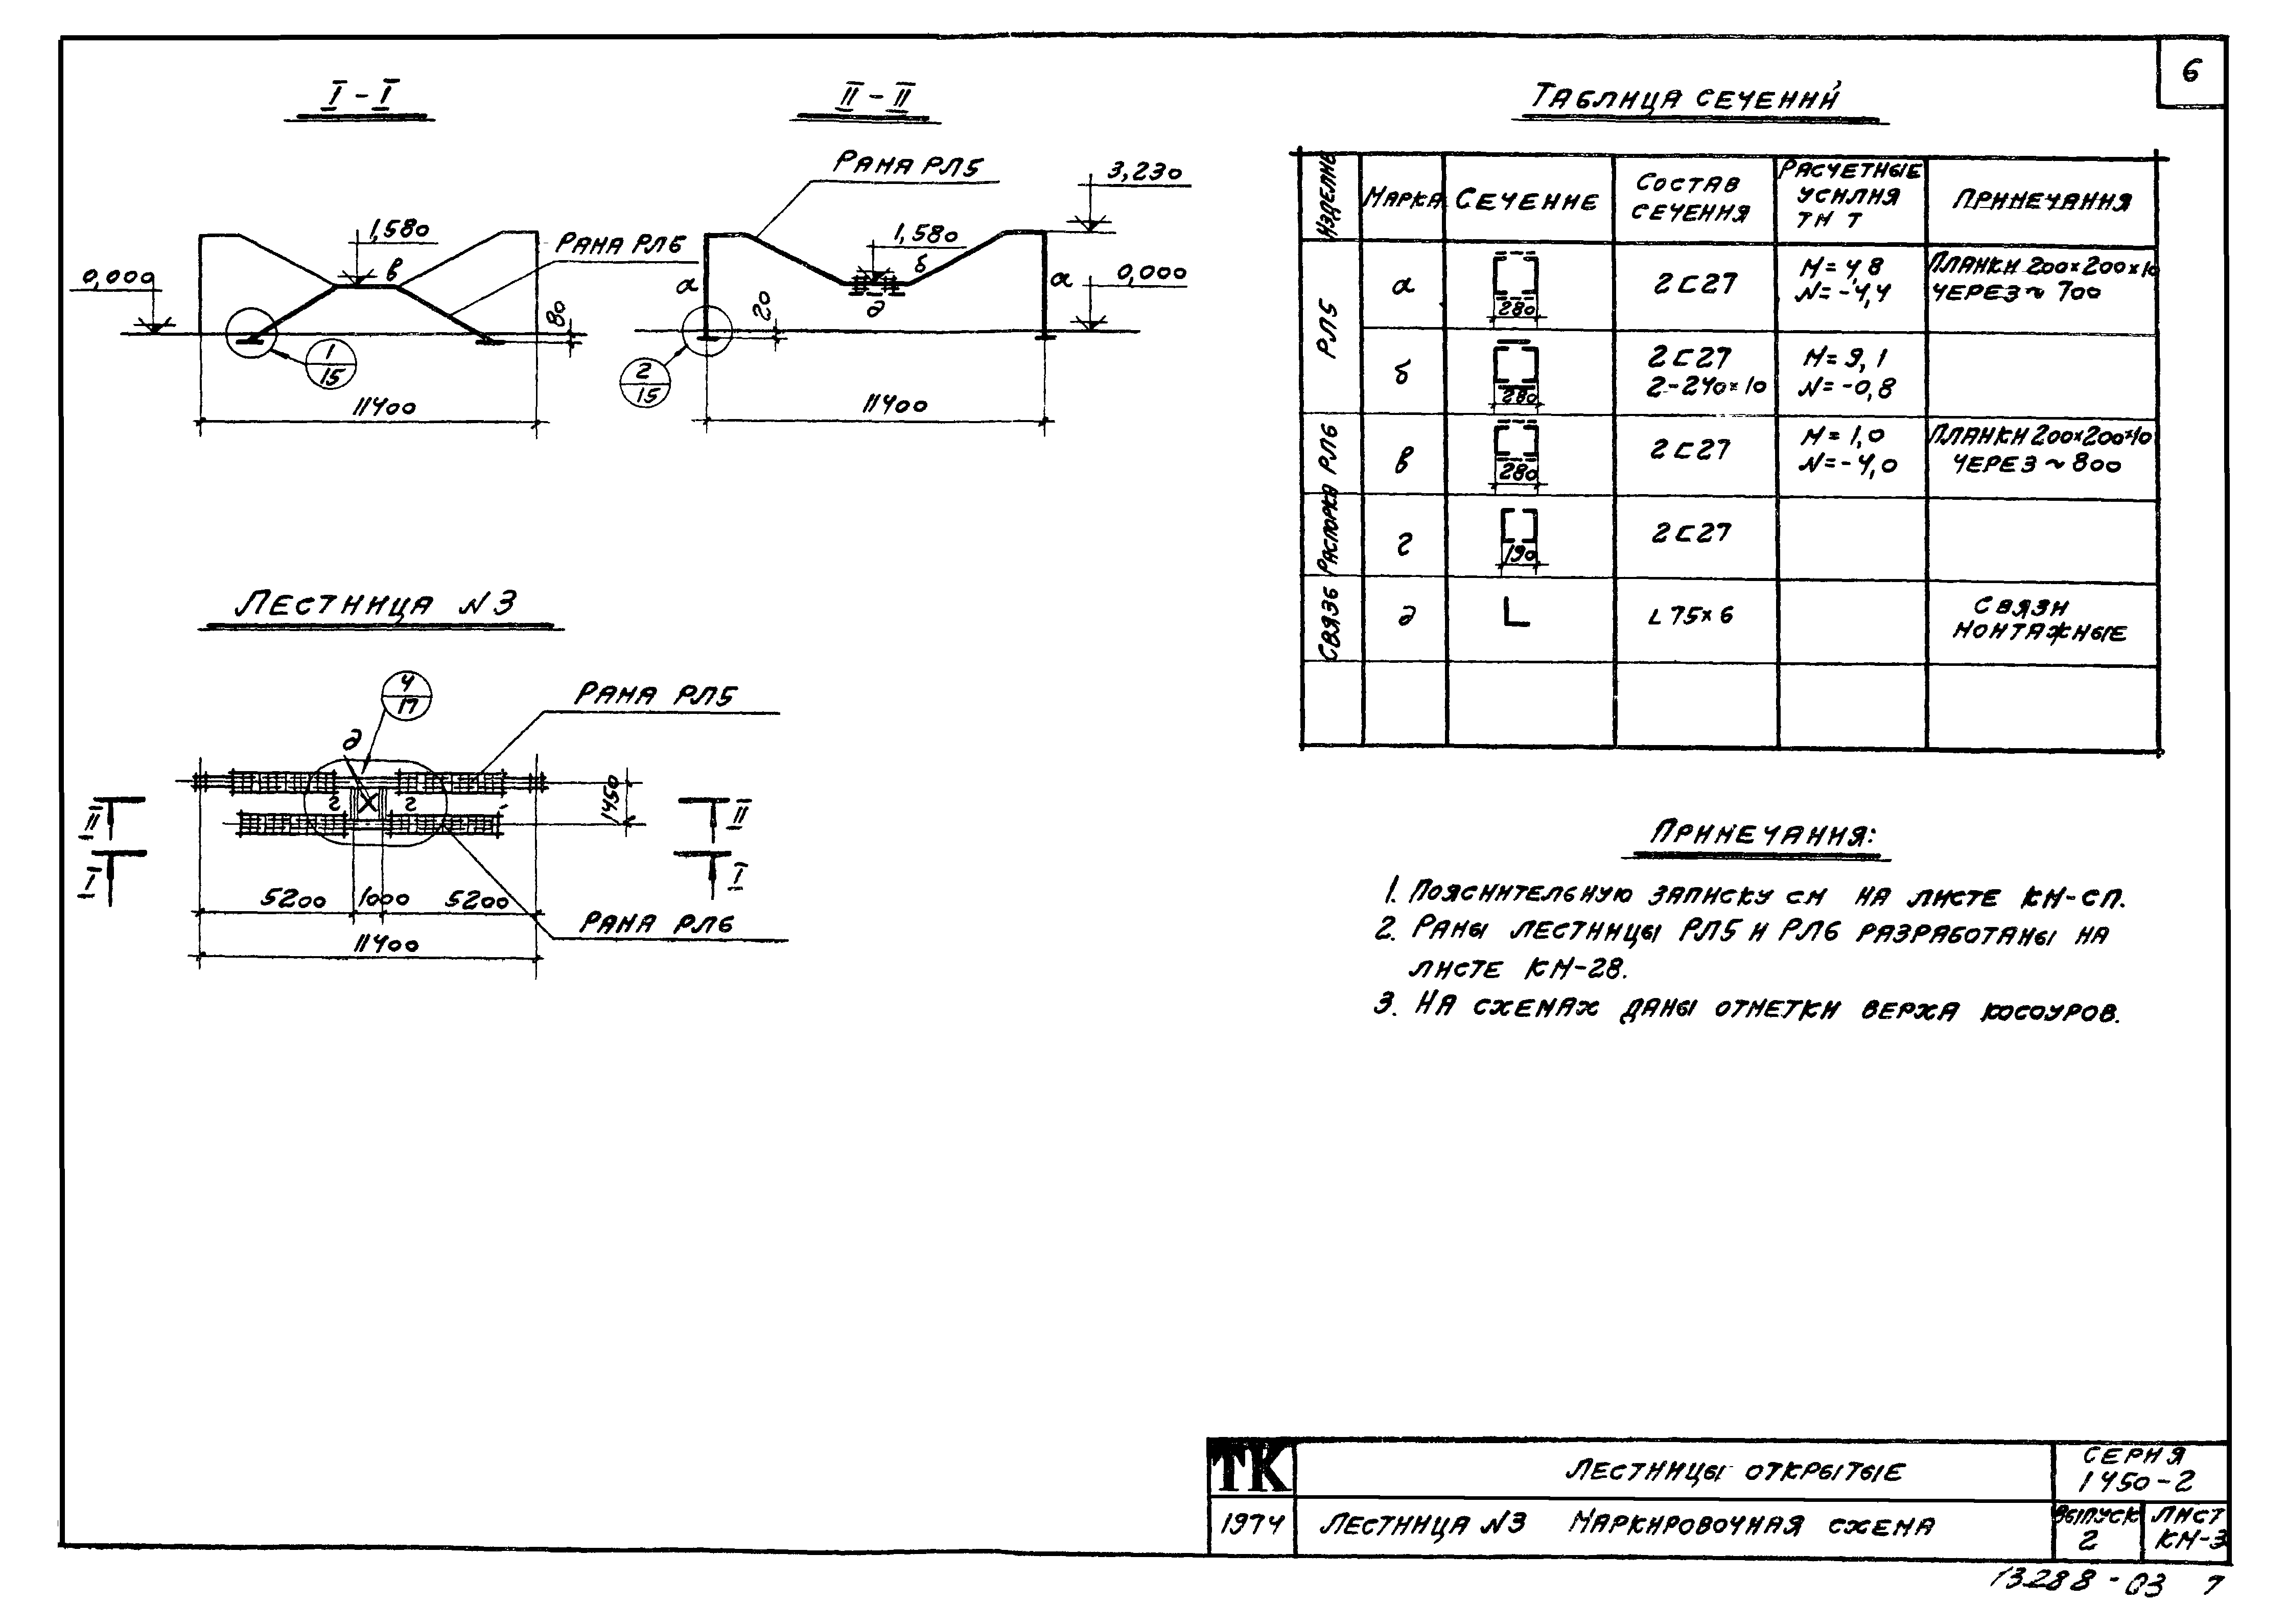 6
I - I
II - II
Рама РЛ5
3,230
1,580
в
Рама РЛ6
0,000
80
1
15
11400
1,580
б
а
а
0,000
д
20
2
15
11400
Лестница N3
4
17
Рама РЛ5
д
г
г
1450
II
II
I
I
5200
1000
5200
11400
Рама РЛ6
Таблица сечений
Изделие
Марка
Сечение
Состав
сечения
Расчетные
усилия
тм т
Примечания
РЛ5
а
280
2 С 27
М = 4,8
N = -4,4
Планки 200×200×10
через ~ 700
б
280
2 С 27
2-240×10
М = 9,1
N = -0,8
РЛ6
в
280
2 С 27
М = 1,0
N = -4,0
Планки 200×200×10
через ~ 800
Распорка
г
190
2 С 27
Связь
д
L 75×6
Связи
монтажные
Примечания:
1. Пояснительную записку см на листе КМ-СП.
2. Рамы лестницы РЛ5 и РЛ6 разработаны на
листе КМ-28.
3. На схемах даны отметки верха косоуров.
ТК
Лестницы открытые
Серия
1450-2
1974
Лестница N3 Маркировочная схема
Выпуск
2
Лист
КМ-3
13288-03 7